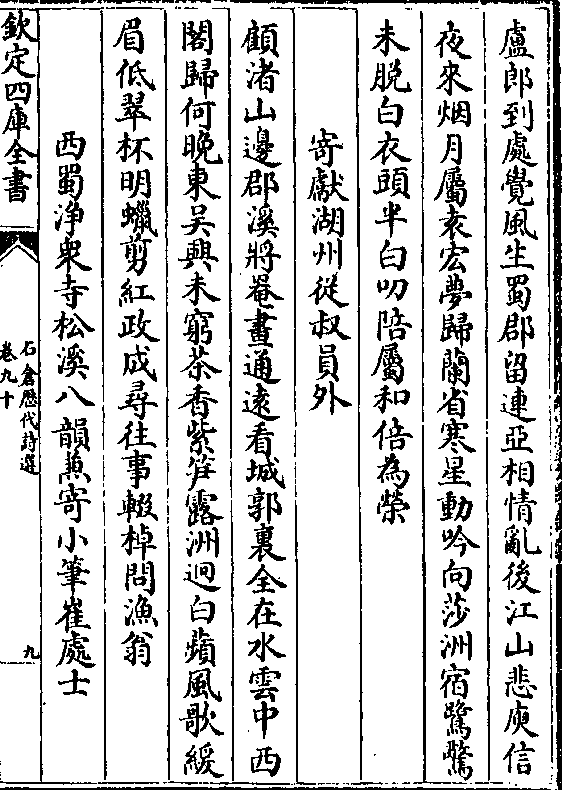 盧郎到處覺風生蜀郡留連亞相情亂後江山悲庾信
夜來烟月屬袁宏夢歸蘭省寒星動吟向莎洲宿鷺驚
未脱白衣頭半白叨陪屬和倍為榮
寄獻湖州從叔員外
顧渚山邊郡溪將罨畫通遠看城郭裏全在水雲中西
閣歸何晚東吳興未窮茶香紫笋露洲迥白蘋風歌緩
眉低翠杯明蠟剪紅政成尋往事輟棹問漁翁
西蜀淨衆寺松溪八韻兼寄小筆崔處士
欽定四庫全書
石倉歷代詩選
卷九十
九